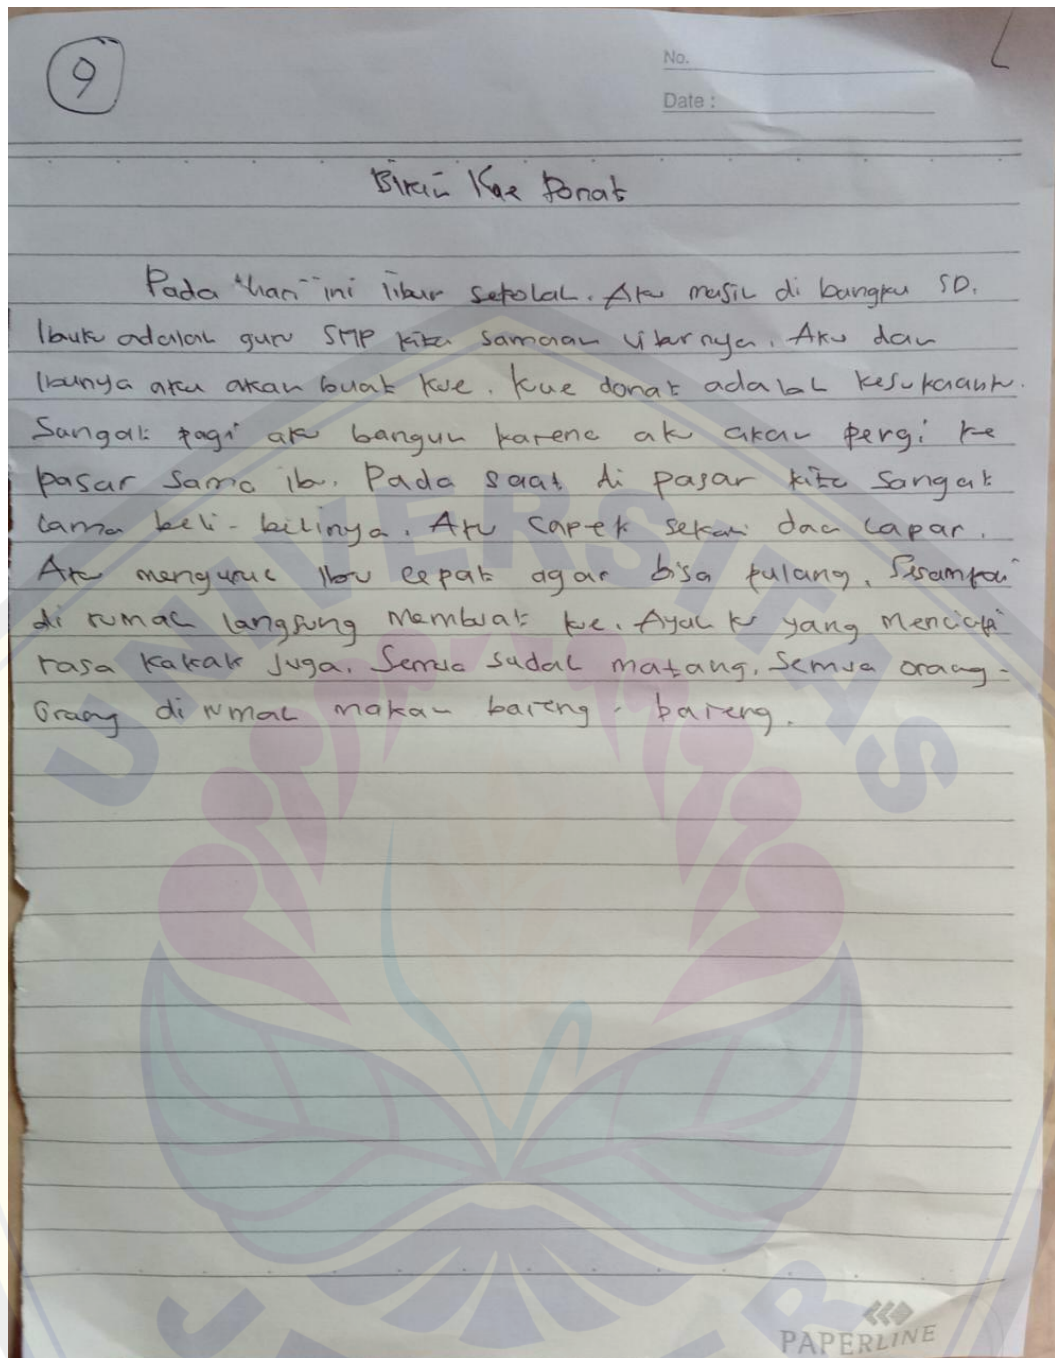 9
No.
Date :
Bikin Kue Donat
Pada hari ini libur sekolah. Aku masih di bangku SD.
Ibuku adalah guru SMP kita samaan liburnya. Aku dan
Ibunya aku akan buat kue. Kue donat adalah kesukaanku.
Sangat pagi aku bangun karena aku akan pergi ke
pasar sama ibu. Pada saat di pasar kita sangat
lama beli-bilinya. Aku capek sekali dan lapar.
Aku Ibu cepat agar bisa pulang. Sesampai
di rumah langsung membuat kue. Ayah ku yang mencicipi
rasa kakak juga. Semua sudah matang. Semua oraang-
Oraang di rumah makan bareng-bareng.
UNIVERSITAS
JEMBER
PAPERLINE